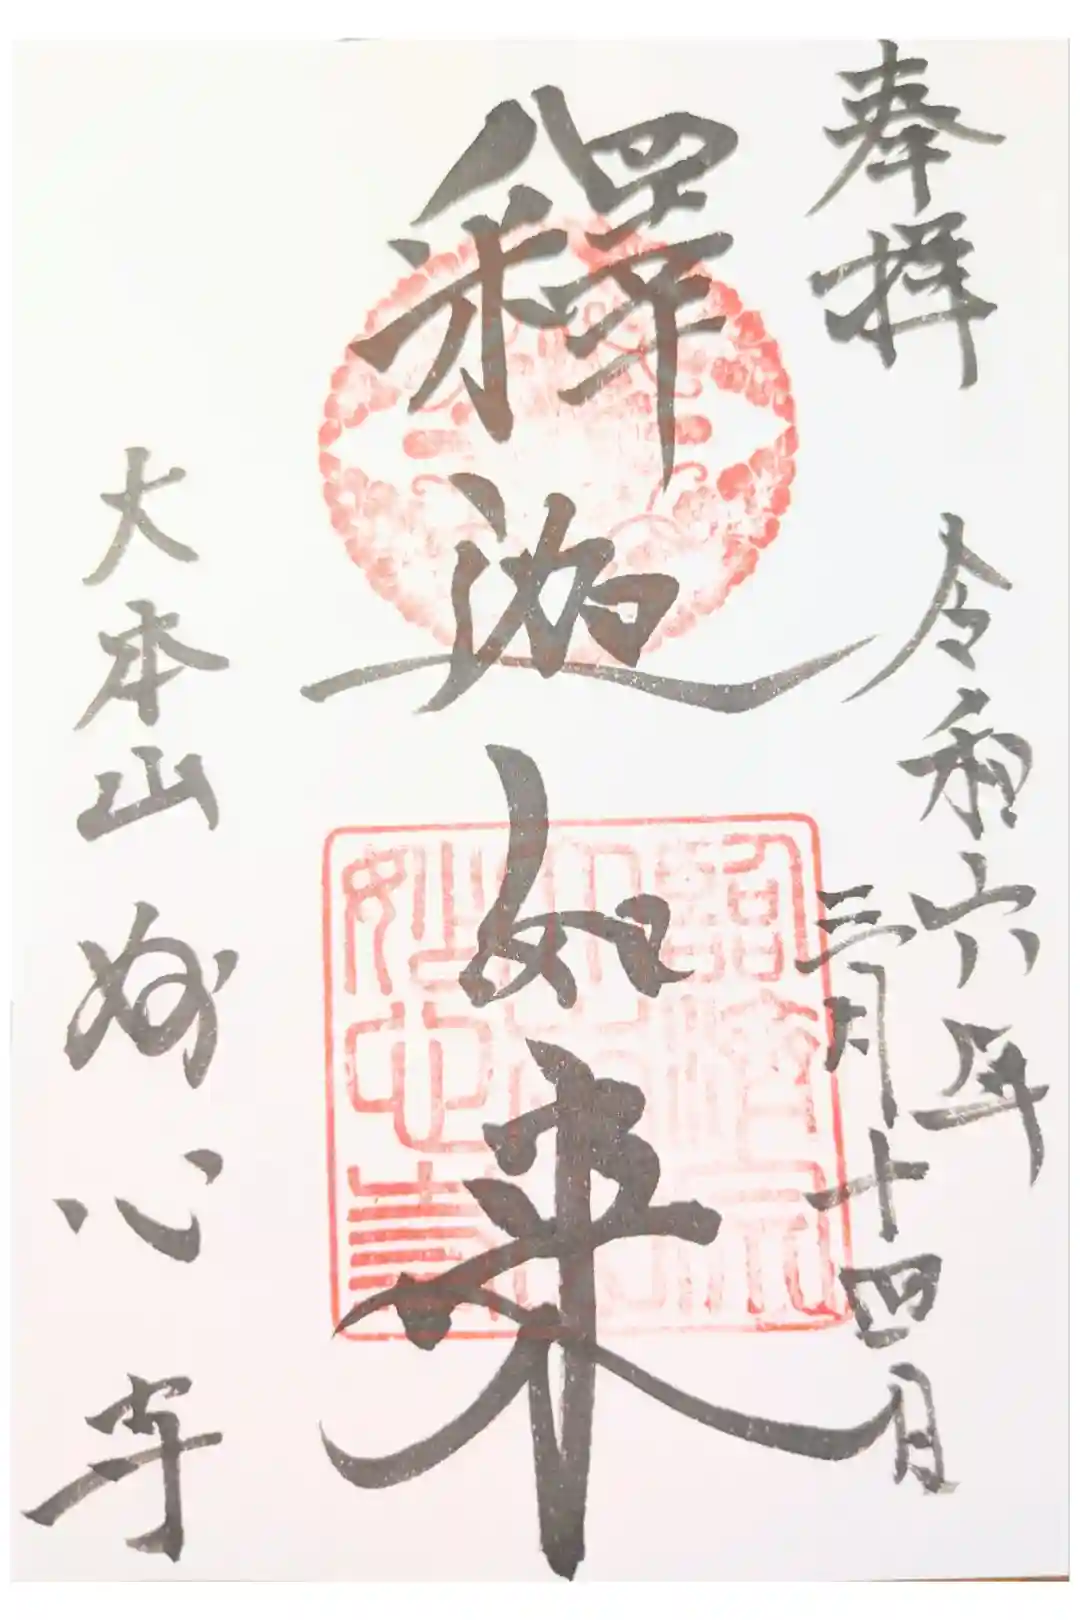 奉拝
令和六年
三月十四日
釋迦如来
大本山 妙心寺